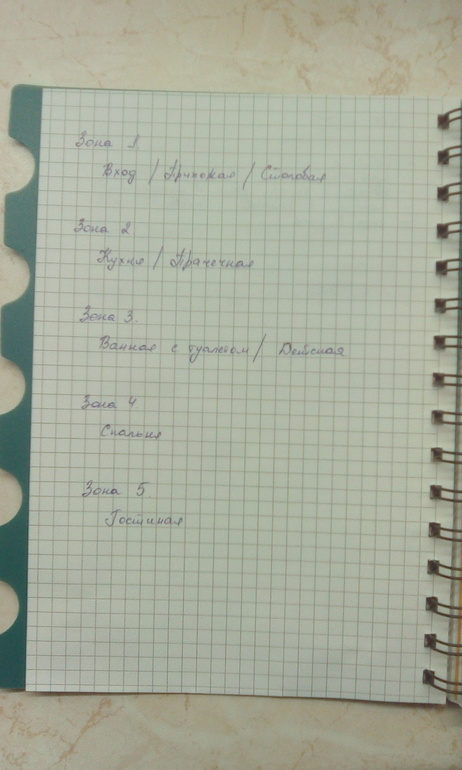 Зона 1
Вход / Прихожая / Столовая
Зона 2
Кухня / Прачечная
Зона 3.
Ванная с туалетом / Детская
Зона 4
Спальня
Зона 5.
Гостиная